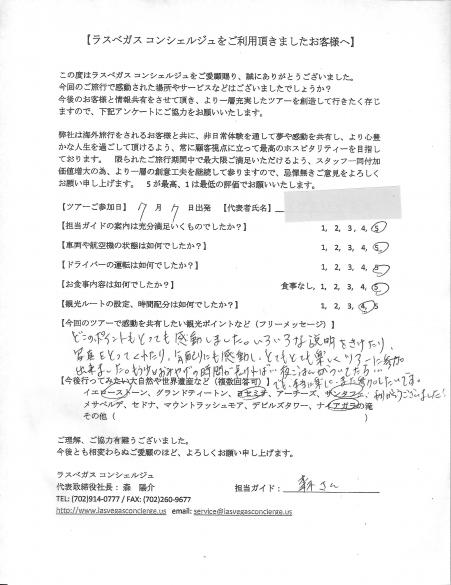 【ラスベガス コンシェルジュをご利用頂きましたお客様へ】
この度はラスベガス コンシェルジュをご愛願賜り、誠にありがとうございました。
今回のご旅行で感動された場所やサービスなどはございましたでしょうか?
今後のお客様と情報共有をさせて頂き、より一層充実したツアーを創造して行きたく存じ
ますので、下記アンケートにご協力をお願いいたします。
弊社は海外旅行をされるお客様と共に、非日常体験を通して夢や感動を共有し、より心豊
かな人生を過ごして頂けるよう、常に顧客視点に立って最高のホスピタリティーを目指し
ております。 限られたご旅行期間中で最大限ご満足いただけるよう、スタッフ一同付加
価値増大の為、より一層の創意工夫を継続して参りますので、忌憚無きご意見をよろしく
お願い申し上げます。 5が最高、1は最低の評価でお願いいたします。
【ツアーご参加日】 7 月 7 日出発 【代表者氏名】
【担当ガイドの案内は充分満足いくものでしたか?】 1, 2, 3, 4, 5
【車両や航空機の状態は如何でしたか?】 1, 2, 3, 4, 5
【ドライバーの運転は如何でしたか?】 1, 2, 3, 4, 5
【お食事内容は如何でしたか?】 食事なし, 1, 2, 3, 4, 5
【観光ルートの設定、時間配分は如何でしたか?】 1, 2, 3, 4, 5
【今回のツアーで感動を共有したい観光ポイントなど(フリーメッセージ)】
どこのポイントもとっても感動しました。いろいろな説明をきけたり、
写真をとってくれたり、気配りにも感動し、とてもとても楽しくツアーに参加
出来ました。もう少しおみやげの時間が
【今後行ってみたい大自然や世界遺産など(複数回答可)】 でも、本当に楽しい また参加したいです。
イエローストーン、グランドティートン、ヨセミテ、アーチーズ、サンタフェ、 ありがとうございました!
メサベルデ、セドナ、マウントラッシュモア、デビルズタワー、ナイアガラの滝
その他( )
ご理解、ご協力有難うございました。
今後とも相変わらぬご愛顧のほど、よろしくお願い申し上げます。
ラスベガス コンシェルジュ
代表取締役社長: 森 陽介 担当ガイド: 森さん
TEL: (702)914-0777 / FAX: (702)260-9677
http://www.lasvegasconcierge.us email: service@lasvegasconcierge.us